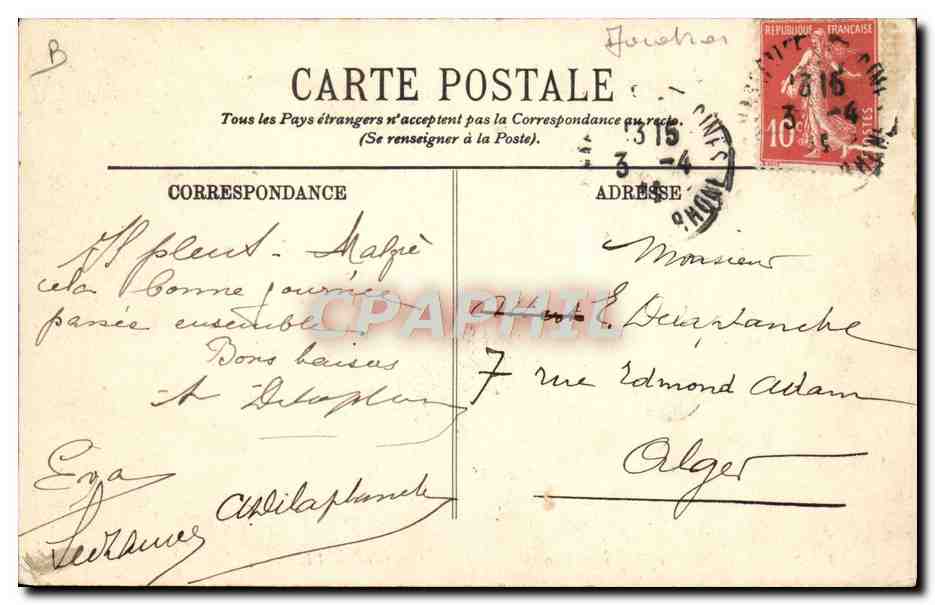 B
CARTE POSTALE
Tous les Pays étrangers n'acceptent pas la Correspondance au recto.
(Se renseigner à la Poste).
REPUBLIQUE FRANÇAISE
10c
POSTES
13 15
3 -4
RHONE
13 15
3 -4
RHONE
CORRESPONDANCE
Il pleut - Malgré
cela bonne journée
passée ensemble.
Bons baisers
A Delaplan
Eva
Suzanne
A Delaplanche
ADRESSE
Monsieur
E. Delaplanche
7 rue Edmond Adam
Alger
CPAPHIL